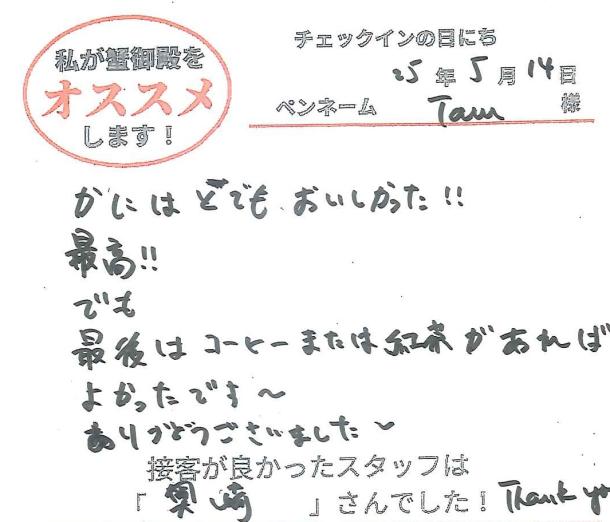 私が蟹御殿を
オススメ
します！
チェックインの日にち
25年5月14日
ペンネーム Tam 様
かにはとても おいしかった!!
最高!!
でも
最後はコーヒーまたは紅茶があれば
よかったです〜
ありがとうございました〜
接客が良かったスタッフは
「 崎 」さんでした！ Thank yo